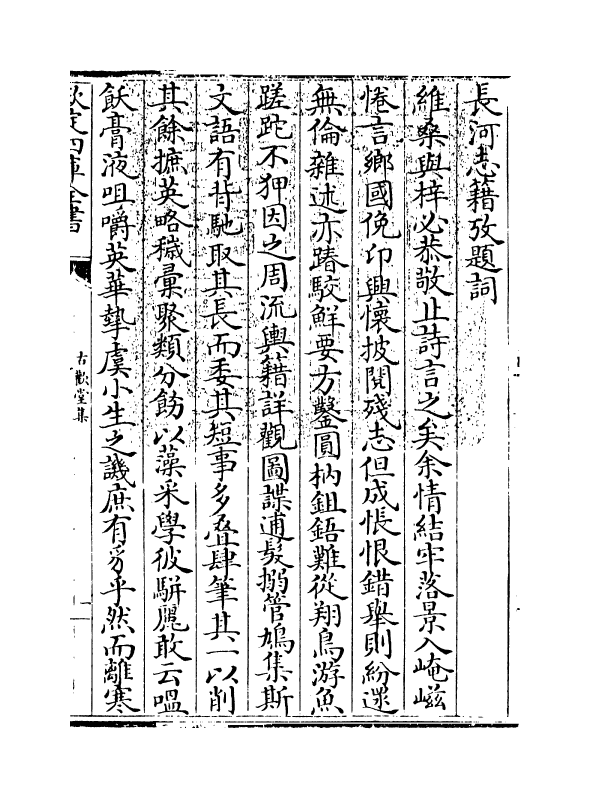 長河志籍攷題詞
維桑與梓必恭敬止詩言之矣余情結牢落景入崦嵫
惓言鄉國俛卬興懷披閱殘志但成悵恨錯舉則紛遝
無倫雜述亦踳駮鮮要方鑿圓枘鉏鋙難從翔鳥游魚
蹉跎不狎因之周流輿籍詳觀圖諜逌髮搦管鳩集斯
文語有背馳取其長而委其短事多叠肆筆其一以削
其餘摭英略穢彚聚類分飭以藻米學彼駢麗敢云嗢
飫膏液咀嚼英華摯虞小生之譏庶有豸乎然而離寒
欽定四庫全書
古歡堂集